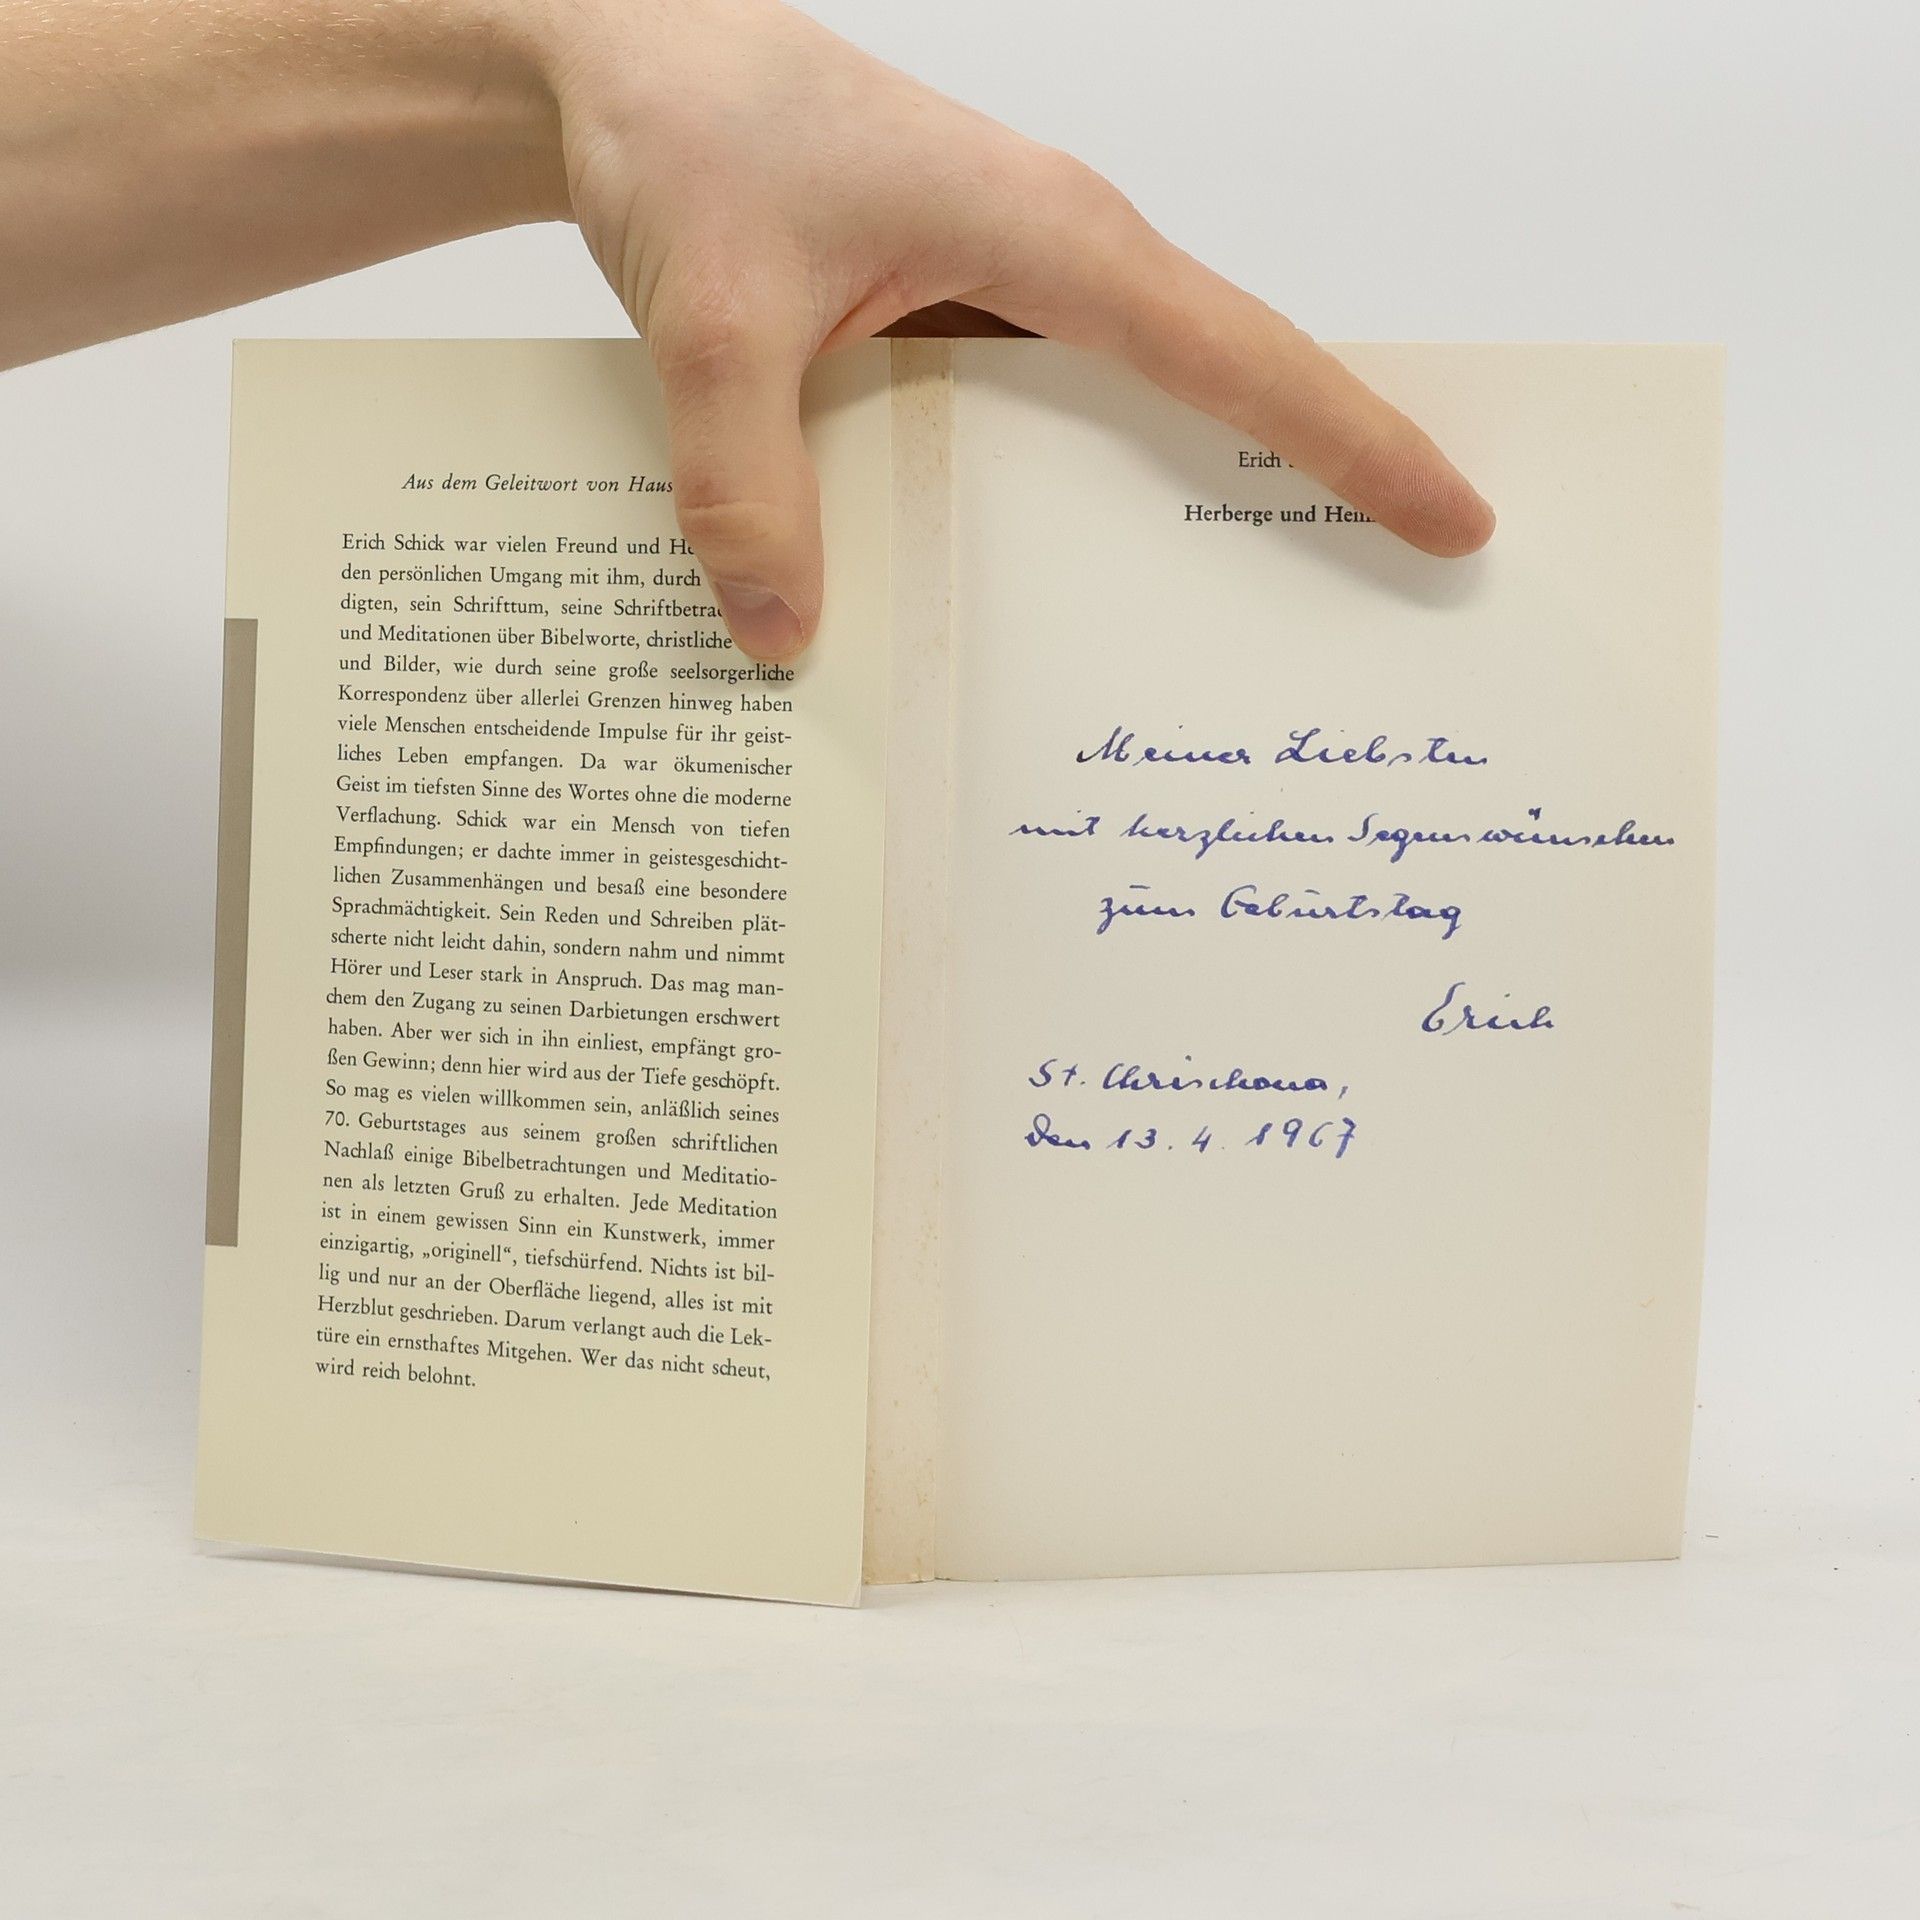 Aus dem Geleitwort von Haus
Erich Schick war vielen Freund und
den persönlichen Umgang mit ihm, durch
digten, sein Schrifttum, seine
und Meditationen über Bibelworte, christliche
und Bilder, wie durch seine große seelsorgerliche
Korrespondenz über allerlei Grenzen hinweg haben
viele Menschen entscheidende Impulse für ihr geist-
liches Leben empfangen. Da war ökumenischer
Geist im tiefsten Sinne des Wortes ohne die moderne
Verflachung. Schick war ein Mensch von tiefen
Empfindungen; er dachte immer in geistesgeschicht-
lichen Zusammenhängen und besaß eine besondere
Sprachmächtigkeit. Sein Reden und Schreiben plät-
scherte nicht leicht dahin, sondern nahm und nimmt
Hörer und Leser stark in Anspruch. Das mag man-
chem den Zugang zu seinen Darbietungen erschwert
haben. Aber wer sich in ihn einliest, empfängt gro-
ßen Gewinn; denn hier wird aus der Tiefe geschöpft.
So mag es vielen willkommen sein, anläßlich seines
70. Geburtstages aus seinem großen schriftlichen
Nachlaß einige Bibelbetrachtungen und Meditatio-
nen als letzten Gruß zu erhalten. Jede Meditation
ist in einem gewissen Sinn ein Kunstwerk, immer
einzigartig, „originell“, tiefschürfend. Nichts ist bil-
lig und nur an der Oberfläche liegend, alles ist mit
Herzblut geschrieben. Darum verlangt auch die Lek-
türe ein ernsthaftes Mitgehen. Wer das nicht scheut,
wird reich belohnt.
Erich
Herberge und
Meiner Liebsten
mit herzlichen Segenswünschen
zum Geburtstag
Erich
St. Chrischona,
den 13. 4. 1967